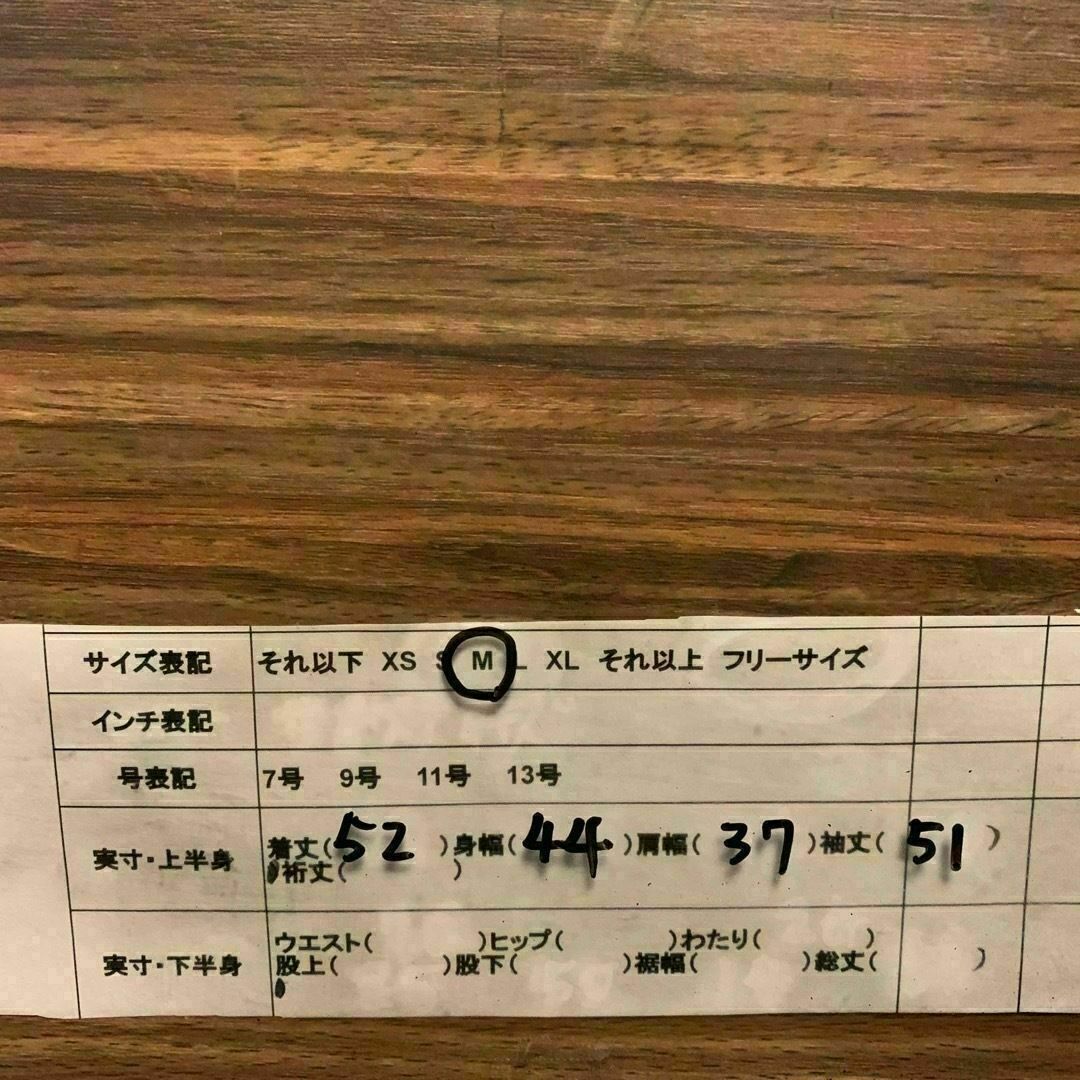 サイズ表記 それ以下 XS S M L XL それ以上 フリーサイズ
インチ表記
号表記 7号 9号 11号 13号
実寸・上半身 着丈(52)身幅(44)肩幅(37)袖丈(51)
裄丈( )
実寸・下半身 ウエスト( )ヒップ( )わたり( )
股上( )股下( )裾幅( )総丈( )